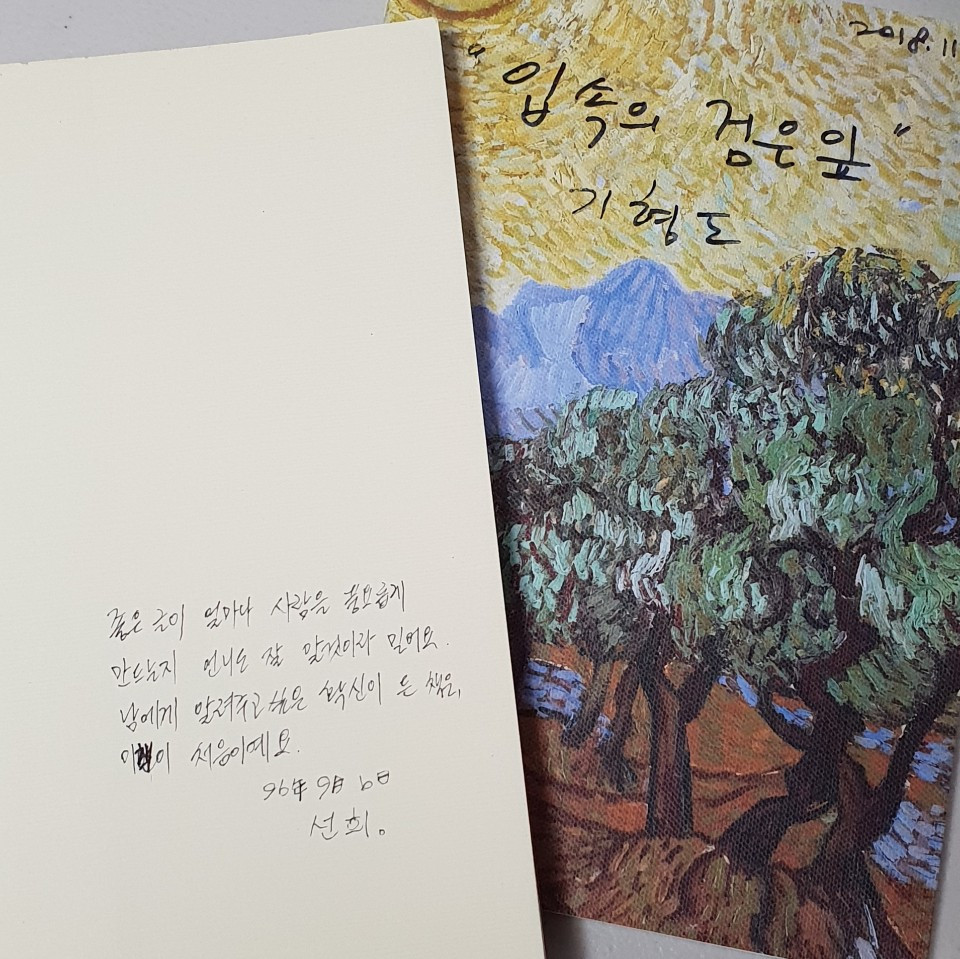 좋은 글이 얼마나 사람을 풍요롭게
만드는지 언니는 잘 알것이라 믿어요.
남에게 알려주고 싶은 확신이 온 책은,
이 처음이예요.
96年 9月 6日
선희。
2018.11
"입속의 검은잎"
기형도